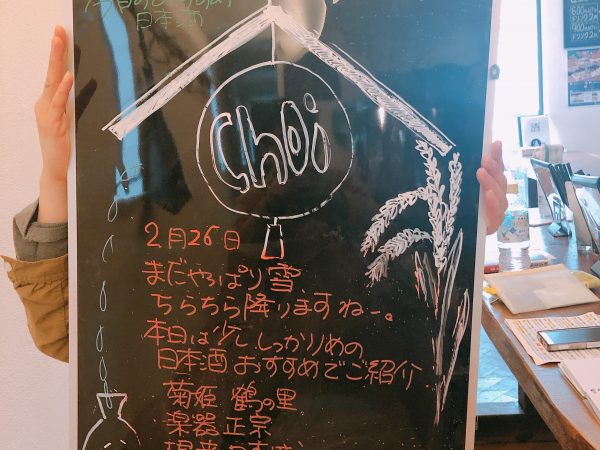 今日のおすすめ
日本酒
choi
2月26日
まだやっぱり雪、
ちらちら降りますねー。
本日は少ししっかりめの
日本酒おすすめでご紹介
菊姫 鶴の里
楽器正宗